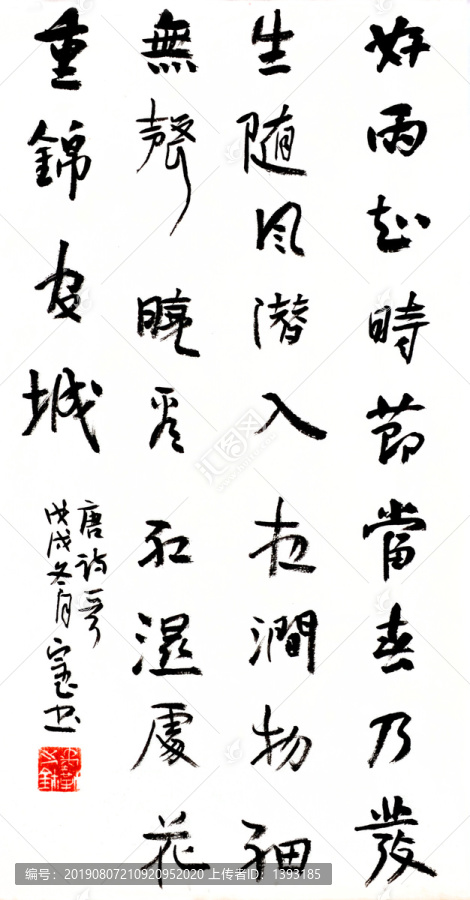 好雨知時節當春乃發
生随风潜入夜潤物細
無聲曉看紅濕處花
重錦官城
唐诗一首
戊戌冬月
汇图网
编号：20190807210920952020 上传者ID：1393185